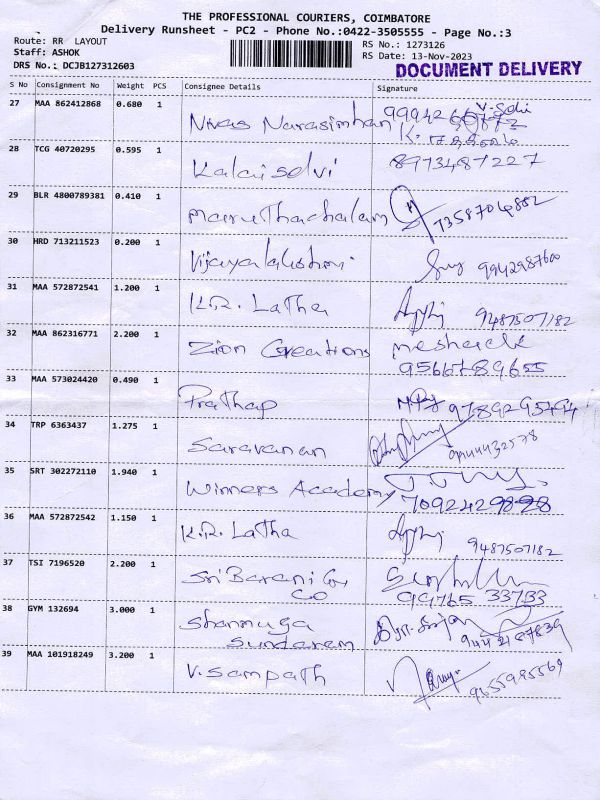 THE PROFESSIONAL COURIERS, COIMBATORE
Delivery Runsheet - PC2 - Phone No.:0422-3505555 - Page No.:3
Route: RR LAYOUT
RS No.: 1273126
Staff: ASHOK
RS Date: 13-Nov-2023
DRS No.: DCJB127312603
DOCUMENT DELIVERY
S No Consignment No Weight PCS Consignee Details Signature
27 MAA 862412868 0.680 1 Nivas Narasimhan
28 TCG 40720295 0.595 1 Kalaiselvi 8973487227
29 BLR 4800789381 0.410 1 Maruthachalam 7358704852
30 HRD 713211523 0.200 1 Vijayalakshmi 9942987600
31 MAA 572872541 1.200 1 K.R. Latha 9487507182
32 MAA 862316771 2.200 1 Zion Creations
9566789655
33 MAA 573024420 0.490 1 Prathap
34 TRP 6363437 1.275 1 Saravanan
35 SRT 302272110 1.940 1 Winners Academy
36 MAA 572872542 1.150 1 K.R. Latha 9487507182
37 TSI 7196520 2.200 1 Sri Barani
Co 99765 33733
38 GYM 132694 3.000 1 Shanmuga
Sundaram
39 MAA 101918249 3.200 1 V. Sampath 9655985569